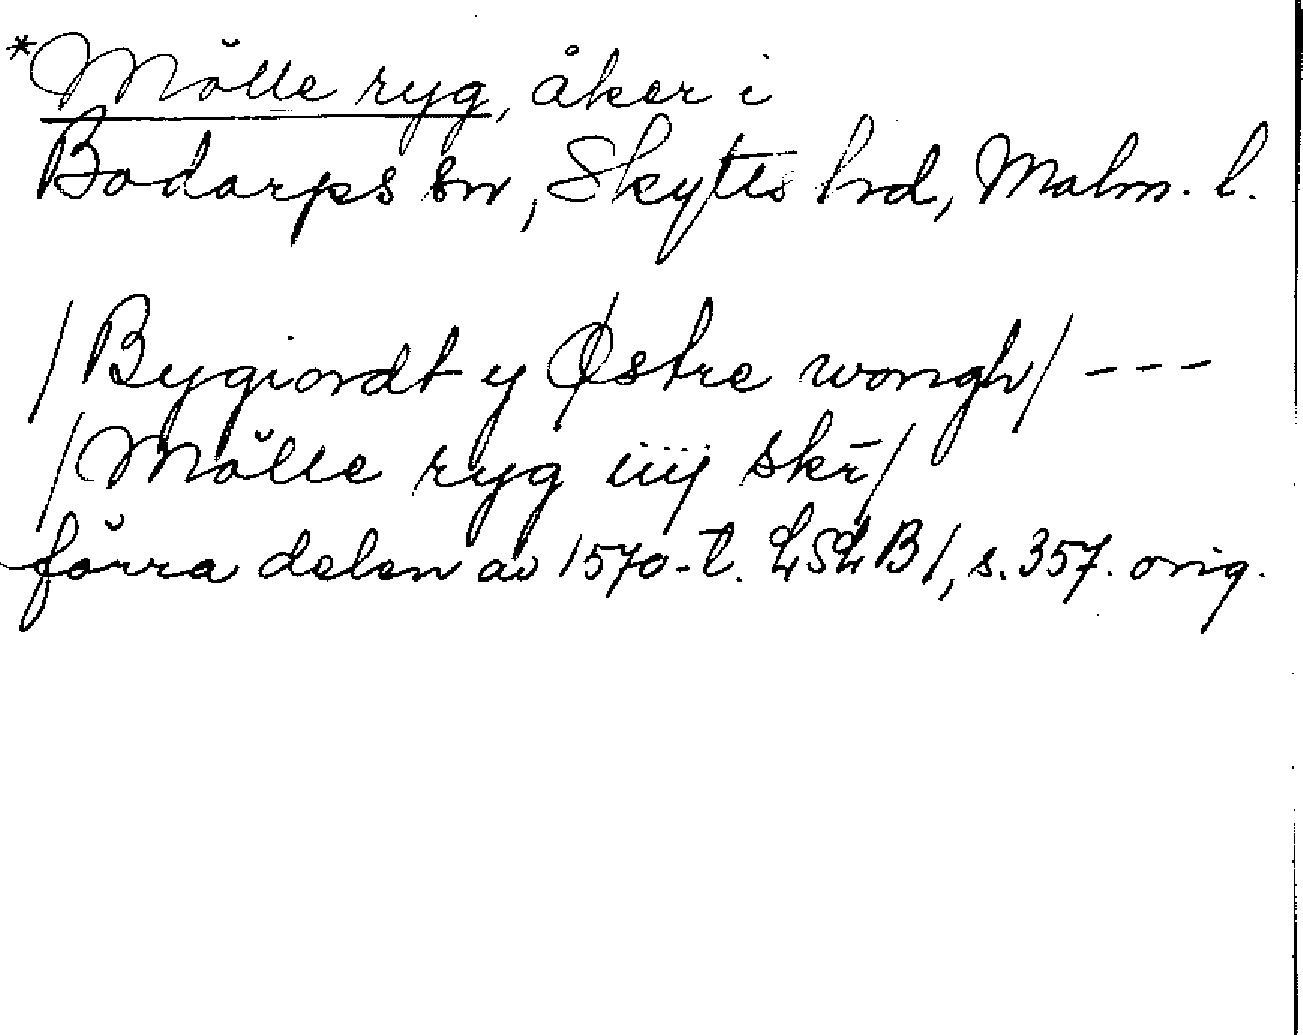 *Mölle ryg, åker i
Bodarps sn, Skytts hrd, Malm. l.
/Bygiordt y Østre wongh/ ---
/Mölle ryg iiij skr̄/
förra delen av 1570-t. LSLB1, s. 357. orig.